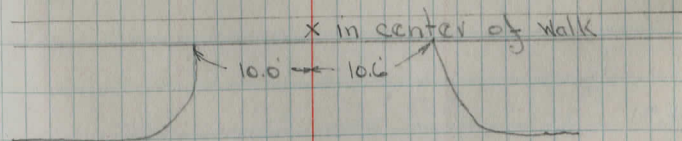 x in center of walk
10.0 10.0